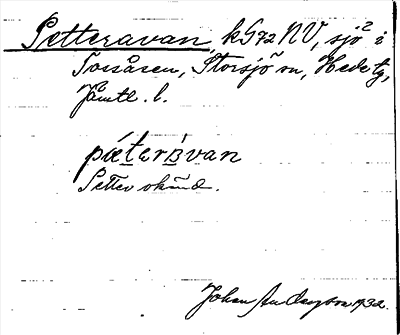 Petteravan, k 572 NV, sjö² i
Tossåsen, Storsjö sn, Hede tg,
Jämtl. l.
pæterávan
Petter okänd.
Johan Andersson 1932.